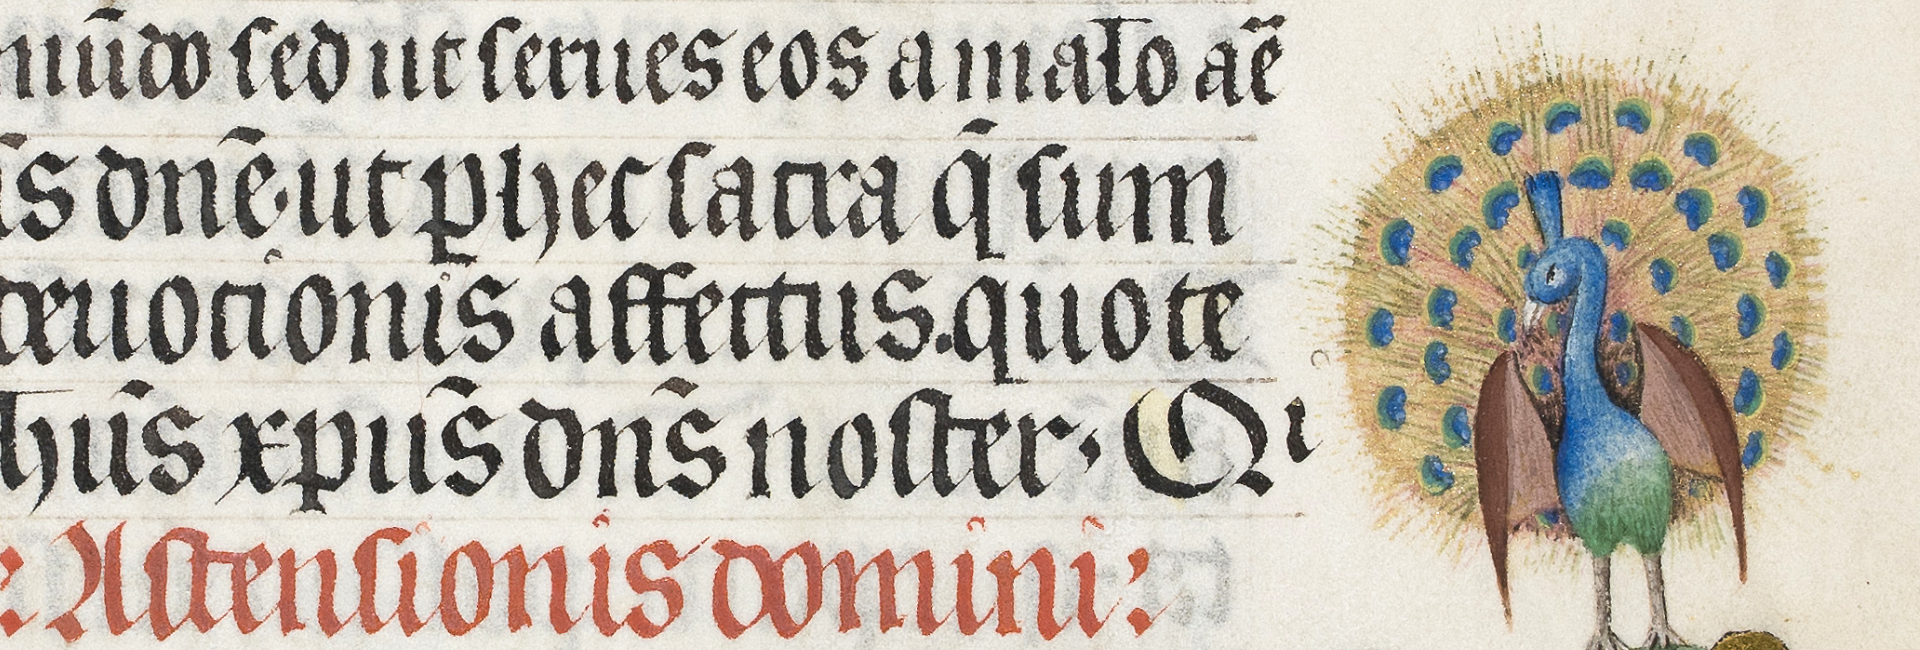 mūdo sed ut serues eos a malo aē
is dn̄e· ut p̱ hec sacra q̄ sum
deuotionis affectus. quote
hūs xp̄us dn̄s noster· Qi
: Ascensionis domini: